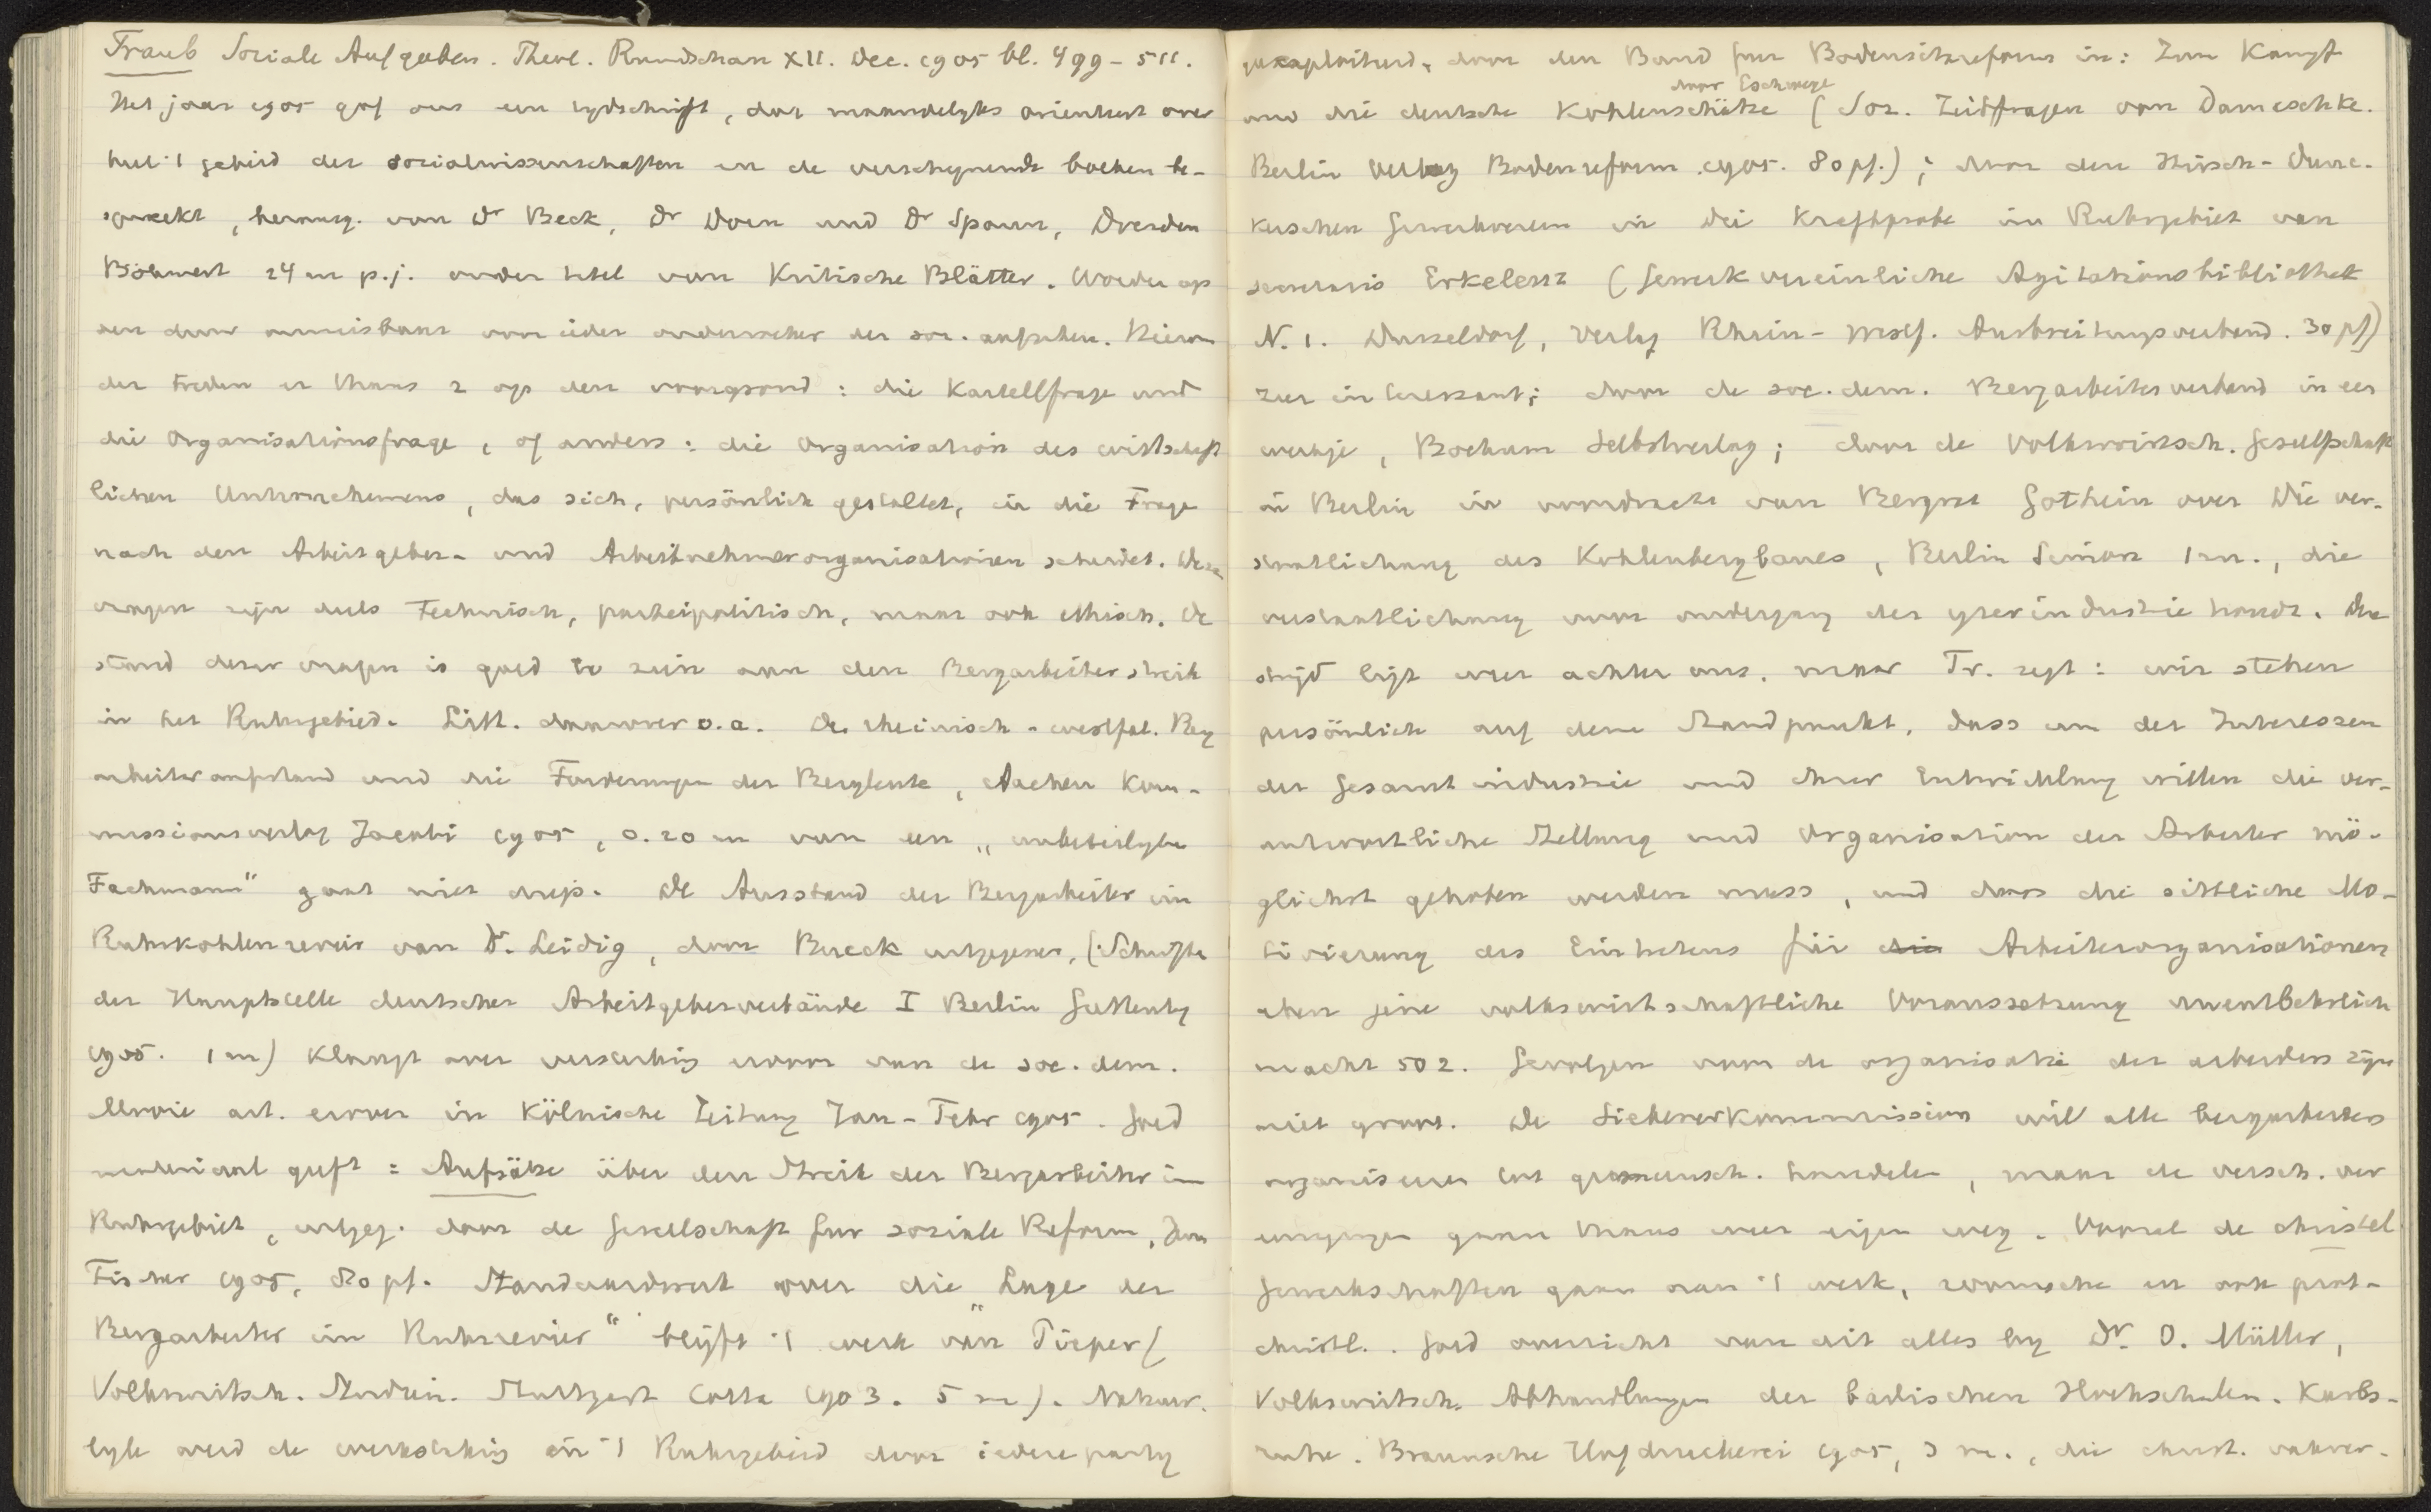 Traub Soziale Aufgaben. Theol. Rundschau XII. Dec. 1905 bl. 499-511.
Het jaar 1905 gaf ons een tydschrift, dat maandelyks orienteert over
heel 't gebied der socialwissenschaften en de verschynende boeken be-
spreekt, herausg. van Dr Beck, Dr Dorn und Dr Spann, Dresden
Böhmert 24 m p.j. onder titel van Kritische Blätter. Worde op
den duur onmisbaar voor ieder onderzoeker der soc. aufgaben. Hierin
der treden er thans 2 op den voorgrond: die Kartellfrage und
die Organisationsfrage, of anders: die Organisation des wirtschaft
lichen Unternehmens, das sich, persönlich gestaltet, in die Frage
nach den Arbeitgeber- und Arbeitnehmerorganisationen scheidet. Deze
vragen zijn deels technisch, parteipolitisch, maar ook ethisch. De
stand dezer vragen is goed te zien aan den Bergarbeiterstreik
in het Ruhrgebied. Litt. daarover o.a. De rheinisch-westfal. Berg
arbeiteraufstand und die Forderungen der Bergleute, Aachen Kom-
missionsverlag Jacobi 1905, 0.20 m van een "unbeteiligten
Fachmann" gaat niet diep. De Ausstand der Bergarbeiter im
Ruhrkohlenrevier van Dr. Leidig, door Bueck uitgegeven, (Schriften
der Hauptstelle deutscher Arbeitgeberverbände I Berlin Guttentag
1905. 1 m) klaagt over verscherping ervan van de soc. dem.
Mooie art. erover in Kölnische Zeitung Jan-Febr 1905. Goed
materiaal geeft: Aufsätze über den Streik der Bergarbeiter im
Ruhrgebiet, uitgeg. door de Gesellschaft fur soziale Reform, Jena
Fischer 1905, 80 pf. Standaardwerk over die "Lage der
Bergarbeiter im Ruhrrevier" blijft 't werk van Pieper (
Volkswirtsch. Studien. Stuttgart Cotta 1903. 5 m). Natuur-
lyk werd de werkstaking in 't Ruhrgebied door iedere party
geexploiteerd, door den Bund fur Bodenbesitzreform in: Zum Kampf
door Eschwege
um die deutsche Kohlenschätze (Soz. Zeitfragen von Damaschke.
Berlin Verlag Bodenreform 1905. 80 pf.); door den Hirsch-Dunc-
kerschen Gewerkverein in Die Kraftprobe im Ruhrgebiet van
secretaris Erkelenz (Gewerkvereinliche Agitationsbibliothek
N. 1. Dusseldorf, Verlag Rhein-westf. Ausbreitungsverband. 30 pf)
zeer interessant; door de soc. dem. Bergarbeiterverband in een
werkje, Bochum Selbstverlag; door de Volkswirtsch. Gesellschaft
in Berlin in voordracht van Bergrat Gothein over Die Ver-
staatlichung des Kohlenbergbaues, Berlin Simion 1 m., die
verstaatlichung voor ondergang der yzerindustrie houdt. De
strijd ligt weer achter ons. maar Tr. zegt: wir stehen
persönlich auf dem Standpunkt, dass um der Interessen
der Gesamtindustrie und ihrer Entwicklung willen die ver-
antwortliche Stellung und Organisation der Arbeiter mö-
glichst gehoben werden muss, und dass die sittliche Mo-
tivierung des Eintretens für die Arbeiterorganisationen
eben jene volkswirtschaftliche Voraussetzung unentbehrlich
macht 502. Gevolgen voor de organisatie der arbeiders zijn
niet groot. De Siebenerkommission wil alle bergarbeiders
organiseren tot gemeensch. handelen, maar de versch. ver
eenigingen gaan thans weer eigen weg. Vooral de christel
Gewerkschaften gaan aan 't werk, zoowel de er ook prot-
christl. Goed overzicht van dit alles by Dr. O. Müller,
Volkswirtsch. Abhandlungen der badischen Hochschulen. Karls-
ruhe. Braunsche Hofdruckerei 1905, 3 m., die christ. vakver-